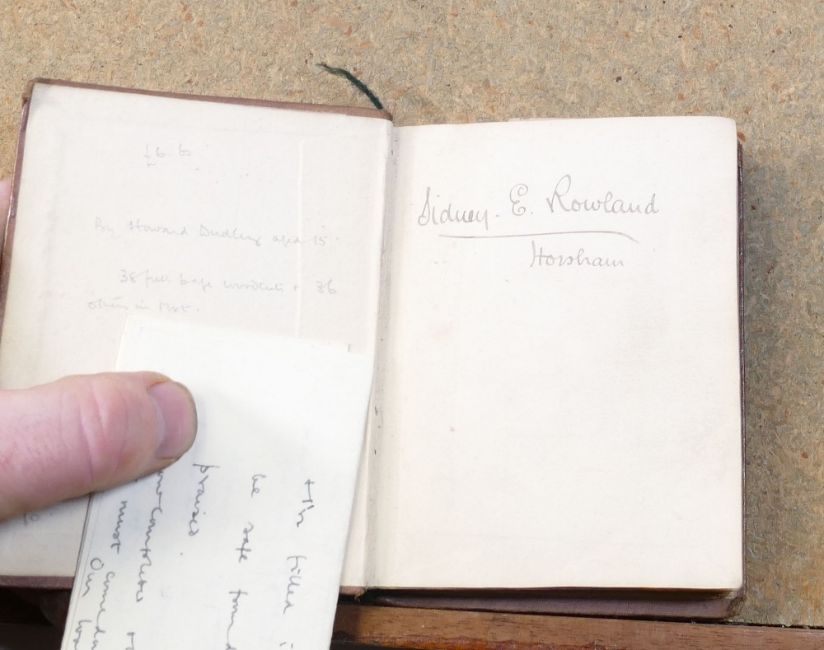 £6.6
By Howard Dudley aged 15.
38 full page woodcuts + 36
others in text.
Sidney. E. Rowland
Horsham
filled
be safe
praised.
must
Our